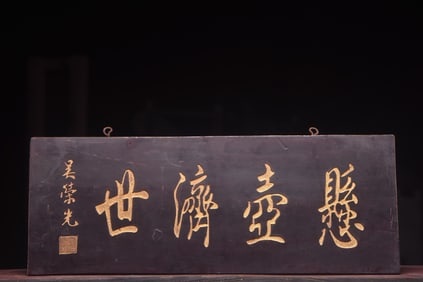 懸壺濟世
吳榮光